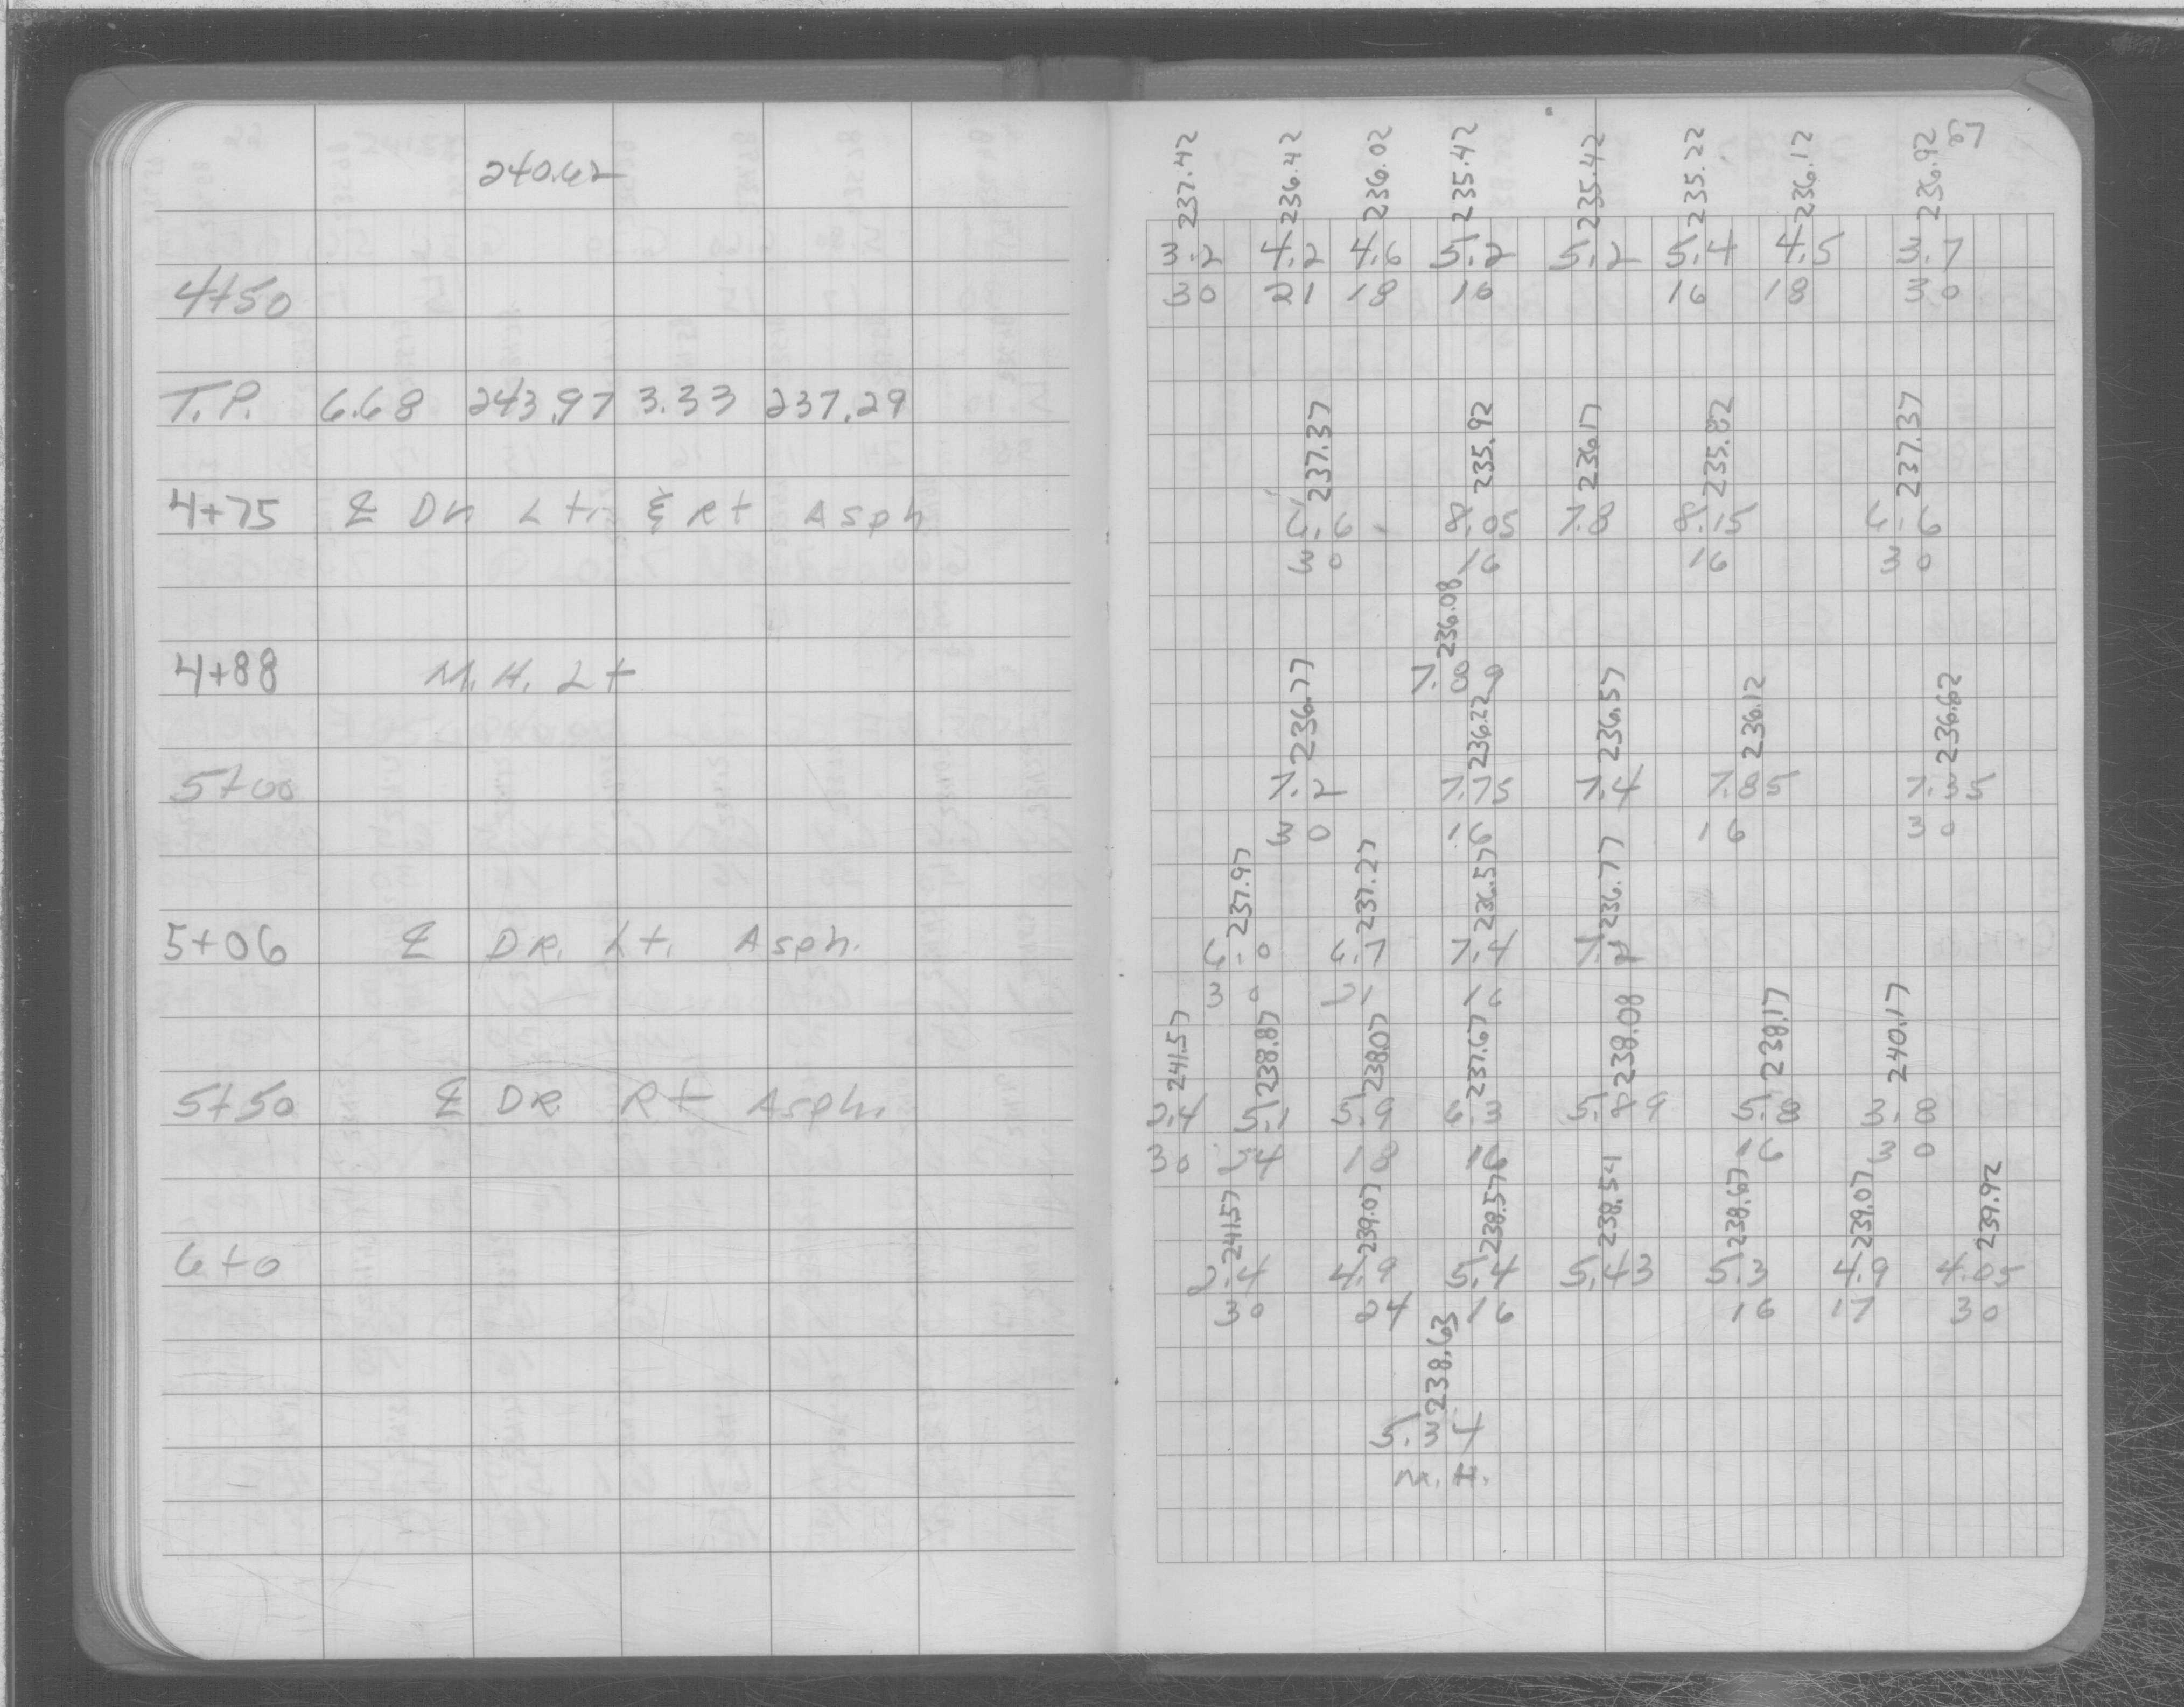 240.62
4+50
T.P. 6.68 243.97 3.33 237.29
4+75 ℄ Dr Lt. & Rt Asph
4+88 M.H. Lt
5+00
5+06 ℄ DR. Lt. Asph.
5+50 ℄ DR Rt Asph.
6+0
237.42 236.42 236.02 235.42 235.42 235.22 236.12 236.92
3.2 4.2 4.6 5.2 5.2 5.4 4.5 3.7
30 21 18 16 16 18 30
237.37 235.92 236.17 235.82 237.37
6.6 8.05 7.8 8.15 6.6
30 16 16 30
236.08
7.89
236.77 236.22 236.57 236.12 236.62
7.2 7.75 7.4 7.85 7.35
30 16 16 30
237.97 237.27 236.57 236.77
6.0 6.7 7.4 7.2
30 21 16
241.57 238.87 238.07 237.67 238.08 238.17 240.17
2.4 5.1 5.9 6.3 5.89 5.8 3.8
30 24 18 16 16 30
241.57 239.07 238.57 238.54 238.67 239.07 239.92
2.4 4.9 5.4 5.43 5.3 4.9 4.05
30 24 16 16 17 30
238.63
5.34
M.H.